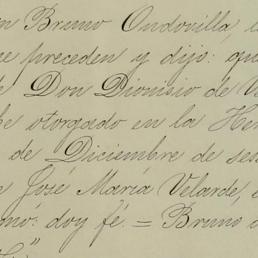 n Bruno Ondovilla,
ue preceden y dijo: que
e Don Dionisio de V
he otorgado en la He
de Diciembre de se
e José María Velarde,
mo: doy fé. = Bruno